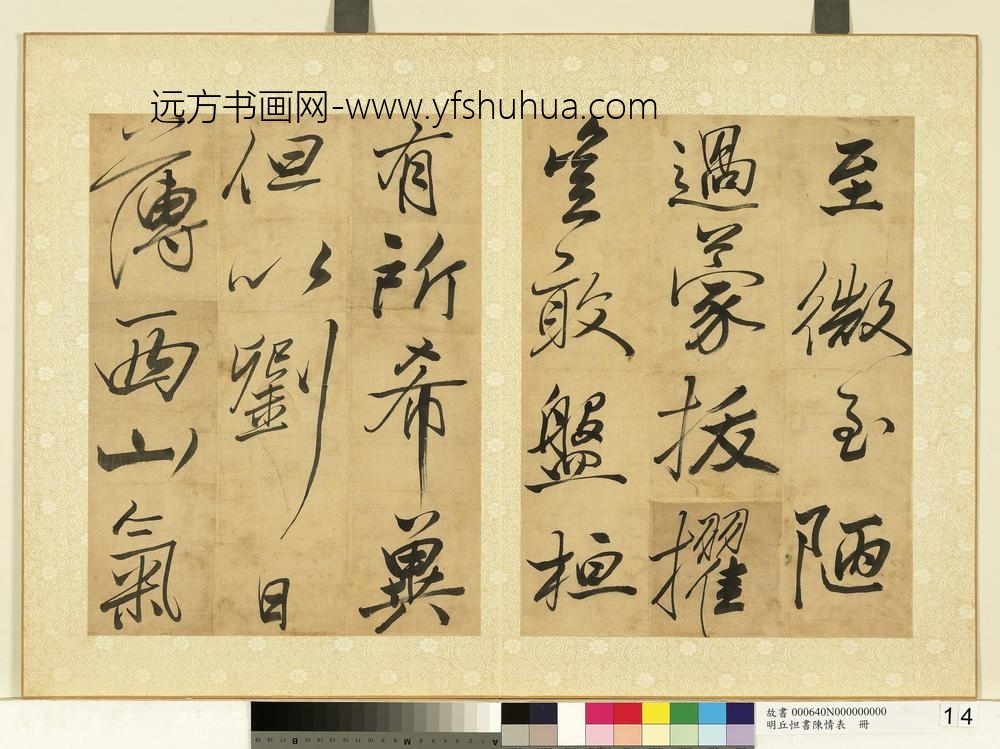 远方书画网-www.yfshuhua.com
至微至陋
過蒙拔擢
豈敢盤桓
有所希冀
但以劉日
薄西山氣
故書 000640N000000000
明丘怛書陳情表 冊
14